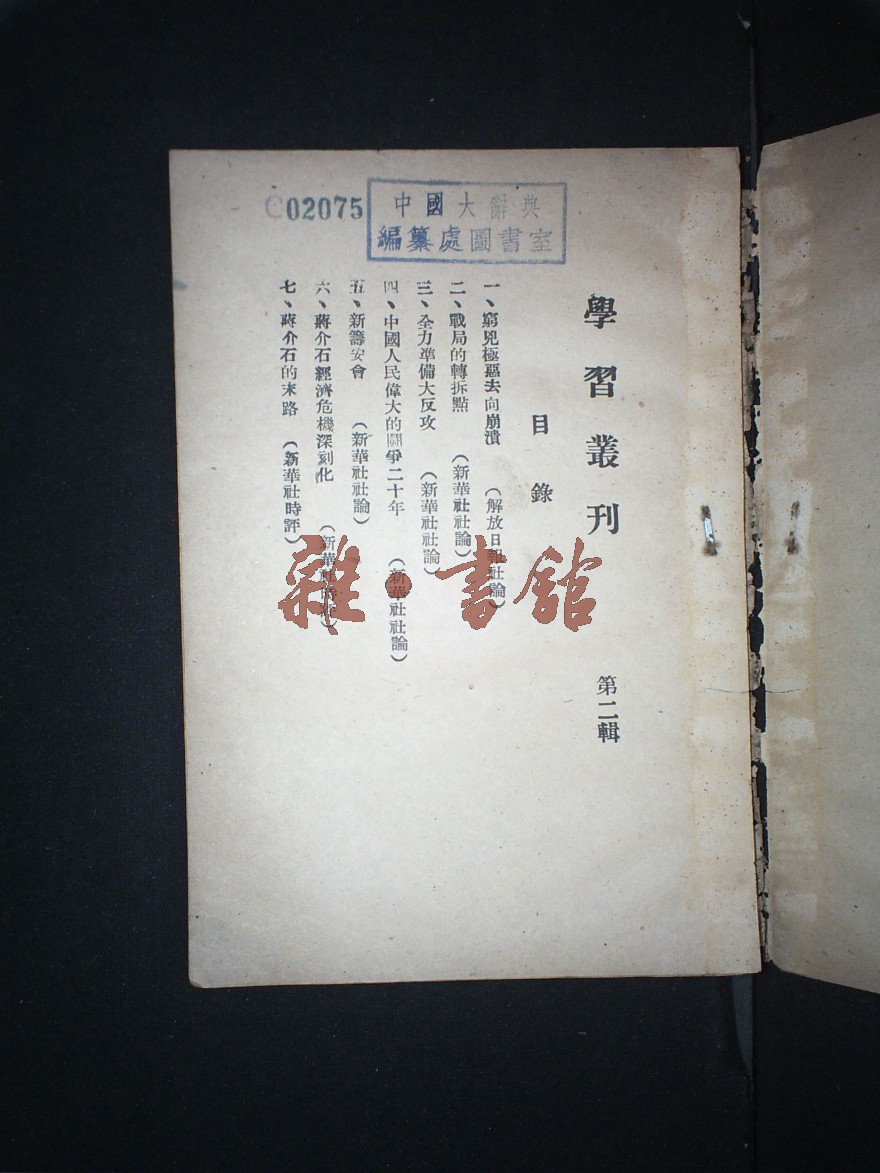 C02075
中國大辭典
編纂處圖書室
學習叢刊 第二輯
目錄
一、窮兇極惡去向崩潰 (解放日報社論)
二、戰局的轉拆點 (新華社社論)
三、全力準備大反攻 (新華社社論)
四、中國人民偉大的鬪爭二十年 (新華社社論)
五、新籌安會 (新華社社論)
六、蔣介石經濟危機深刻化 (新華社)
七、蔣介石的末路 (新華社時評)
雜·書館